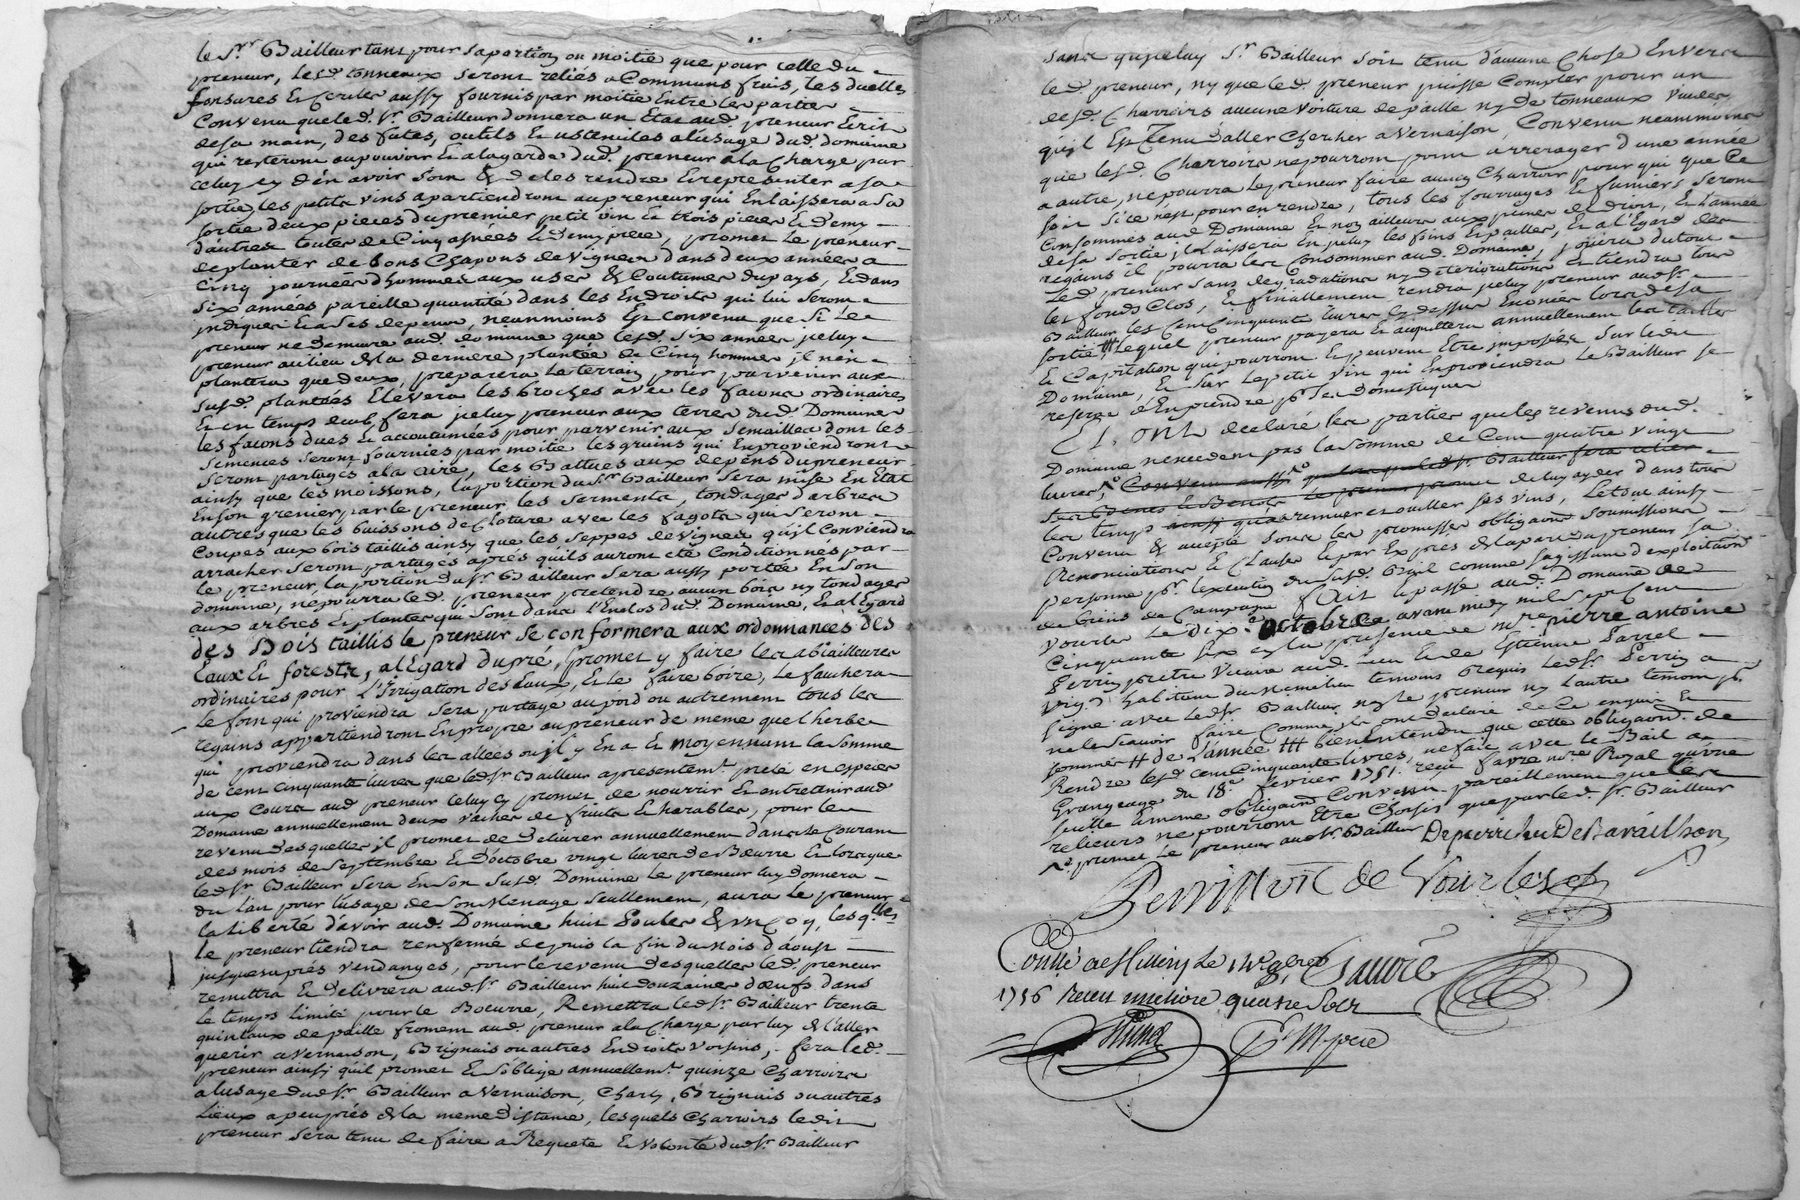 le Sr. Bailleur tant pour sa portion ou moitié que pour celle du
preneur, lesd. tonneaux seront reliés a Communs frais, les duelles
fonsures Et Cercles aussy fournis par moitié Entre les parties
Convenu que led. Sr. Bailleur donnera un Etat aud. preneur Ecrit
de sa main, des futes, outils Et ustenciles a lusage dud. domaine
qui resteront au pouvoir Et a la garde dud. preneur a la Charge par
celuy cy d'en avoir soin & de les rendre Et representer a sa
sortie, les petits vins apartiendront au preneur qui En laissera a Sa
sortie deux pieces du premier petit vin Et trois pieces Et demy
d'autres toutes de Cinq asnées Et demy piece, promet le preneur
de planter de bons Chapons de Vignes dans deux années a
Cinq journées d'hommes aux uses & Coutumes du pays, Et dans
Six années pareille quantité dans les Endroits qui lui seront
indiqués Et a ses depens, neanmoins Est convenu que si le
preneur ne demeure aud. domaine que lesd. six années jceluy
preneur au lieu de la derniere plantée de Cinq hommes il n'en
plantera que deux, preparera le terrain pour parvenir aux
susd. plantées Elevera les broches avec les façons ordinaires
Et en temps deub, fera jceluy preneur aux terres dud. Domaine
les façons dues Et accoutumées pour parvenir aux Semailles dont les
semences seront fournies par moitié les grains qui En proviendront
seront partagés a la aire, les Battues aux depens du preneur
ainsy que les moissons, la portion du Sr. Bailleur Sera mise En Etat
En son grenier par le preneur les Serments, tondages d'arbres
autres que les buissons de Cloture avec les fagots qui Seront
Coupés aux bois taillis ainsy que les seppes de vignes qu'il Conviendra
arracher seront partagés aprés quils auront eté Conditionnés par
le preneur, la portion du Sr. Bailleur Sera aussy portée En son
domaine, ne pourra led. preneur pretendre aucun bois ny tondages
aux arbres Et plantes qui sont dans l'Enclos dud. Domaine, Et al Egard
des Bois taillis le preneur Se conformera aux ordonnances des
Eaux Et forests, al Egard du pré, promet y faire les abiailleures
ordinaires pour l'irrigation des Eaux, Et le faire boire, Le fauchera
le foin qui proviendra sera partagé au poid ou autrement tous les
regains appartiendront En propre au preneur de meme que l herbe
qui proviendra dans les allées ou il y En a Et moyennant la Somme
de cent cinquante livres que led. Sr. Bailleur a presentemt. preté en especes
aux Cours aud. preneur Celuy Cy promet de nourrir Et entretenir aud
Domaine annuellement deux vaches de fruits Et herables, pour le
revenu desquelles il promet de delivrer annuellement dans le Courant
des mois de Septembre Et d'octobre vingt livres de Beurre Et lorsque
led. Sr. Bailleur Sera En son Susd. Domaine le preneur luy donnera
du lait pour lusage de son Menage Seullement, aura le preneur
la liberté d'avoir aud. Domaine huit Poules & un Coq, lesqlles
le preneur tiendra renfermé depuis la fin du mois d'aoust
jusques aprés vendanges, pour le revenu desquelles led. preneur
remettra Et delivrera aud. Sr. Bailleur huit douzaines d'œufs dans
le temps limité pour le Beurre, Remettra led. Sr. Bailleur trente
quintaux de paille froment aud. preneur a la Charge par luy de l'aller
querir a Vernaison, Brignais ou autres Endroits Voisins, fera led.
preneur ainsy quil promet & s'oblige annuellemt. quinze Charroirs
a lusage dud. Sr. Bailleur a Vernaison, Charly, Brignais ou autres
Lieux a peu prés de la meme distance, lesquels Charroirs ledit
preneur sera tenu de faire a Requete Et volonté dud. Sr. Bailleur
sans que jceluy Sr. Bailleur soit tenu d'aucune Chose Envers
led. preneur, ny que led. preneur puisse Compter pour un
desd. Charroirs aucune voiture de paille ny de tonneaux vuides
qu'il Est Tenu d'aller Chercher a Vernaison, Convenu neammoins
que lesd. Charroirs ne pourront point arrerager d une année
a autre, ne pourra le preneur faire aucun Charroir pour qui que Ce
soit Si Ce n'est pour en rendre, tous les fourrages Et fumiers Seront
Consommés aud. Domaine Et non ailleurs aux peines de droit, Et l'année
de sa sortie, il laissera En jceluy les foins Et pailles, Et a l'Egard des
regains il pourra les Consommer aud. Domaine, jouira du tout
Led. preneur sans degradations ny deteriorations Et tiendra tous
les fonds Clos, Et finallement rendra jceluy preneur aud. Sr.
Bailleur les Cent Cinquante livres Cy dessus Enoncées lors de sa
sortie, # Lequel preneur payera Et aquittera annuellement les tailles
Et Capitation qui pourront Et peuvent Etre imposées Sur ledit
Domaine, Et Sur le petit vin qui En proviendra le Bailleur se
reserve d'En prendre pr. Ses domestiques
Et, ont declaré les parties que les revenus dud.
Domaine n'excedent pas la somme de Cent quatre vingt
livres, Convenu aussi que led. Sr. Bailleur fera relier
de luy ayder dans tous
les temps qu'a remuer et ouiller ses vins, Le tout ainsy
Convenu & accepté sous les promesses obligaons. soumissions
Renonciations Et Clauses Et par Exprés de la part du preneur sa
personne pr. lexecution du susd. Bail comme sagissant d'exploitaon
de biens de Campagne fait Et passé aud. Domaine de
Vourles Le dixe. octobre avant midy mil Sept Cent
Cinquante Six en la presence de mre pierre antoine
Perrin pretre Vicaire aud. lieu Et de Etienne Parret
habitant du meme lieu temoins requis led. Sr. Perrin a
signé avec led. Sr. Bailleur ny le preneur ny Lautre temoin pr.
ne le Scavoir faire Comme ils ont declaré de Ce enquis Et
sommés # de l'année # bien Entendu que cette obligaon. de
Rendre lesd. cent Cinquante livres, ne fait avec le Bail a
Grangeage du 18e. fevrier 1751. reçu favre nore. Royal qu'une
seulle Et meme obligaon. Convenu pareillement que les
relieurs ne pourront etre Choisis que par le d. Sr. Bailleur
promet le preneur aud. Sr. Bailleur
Perrin vic de Vourles
Conllé a St Genis Le
1756 Receu